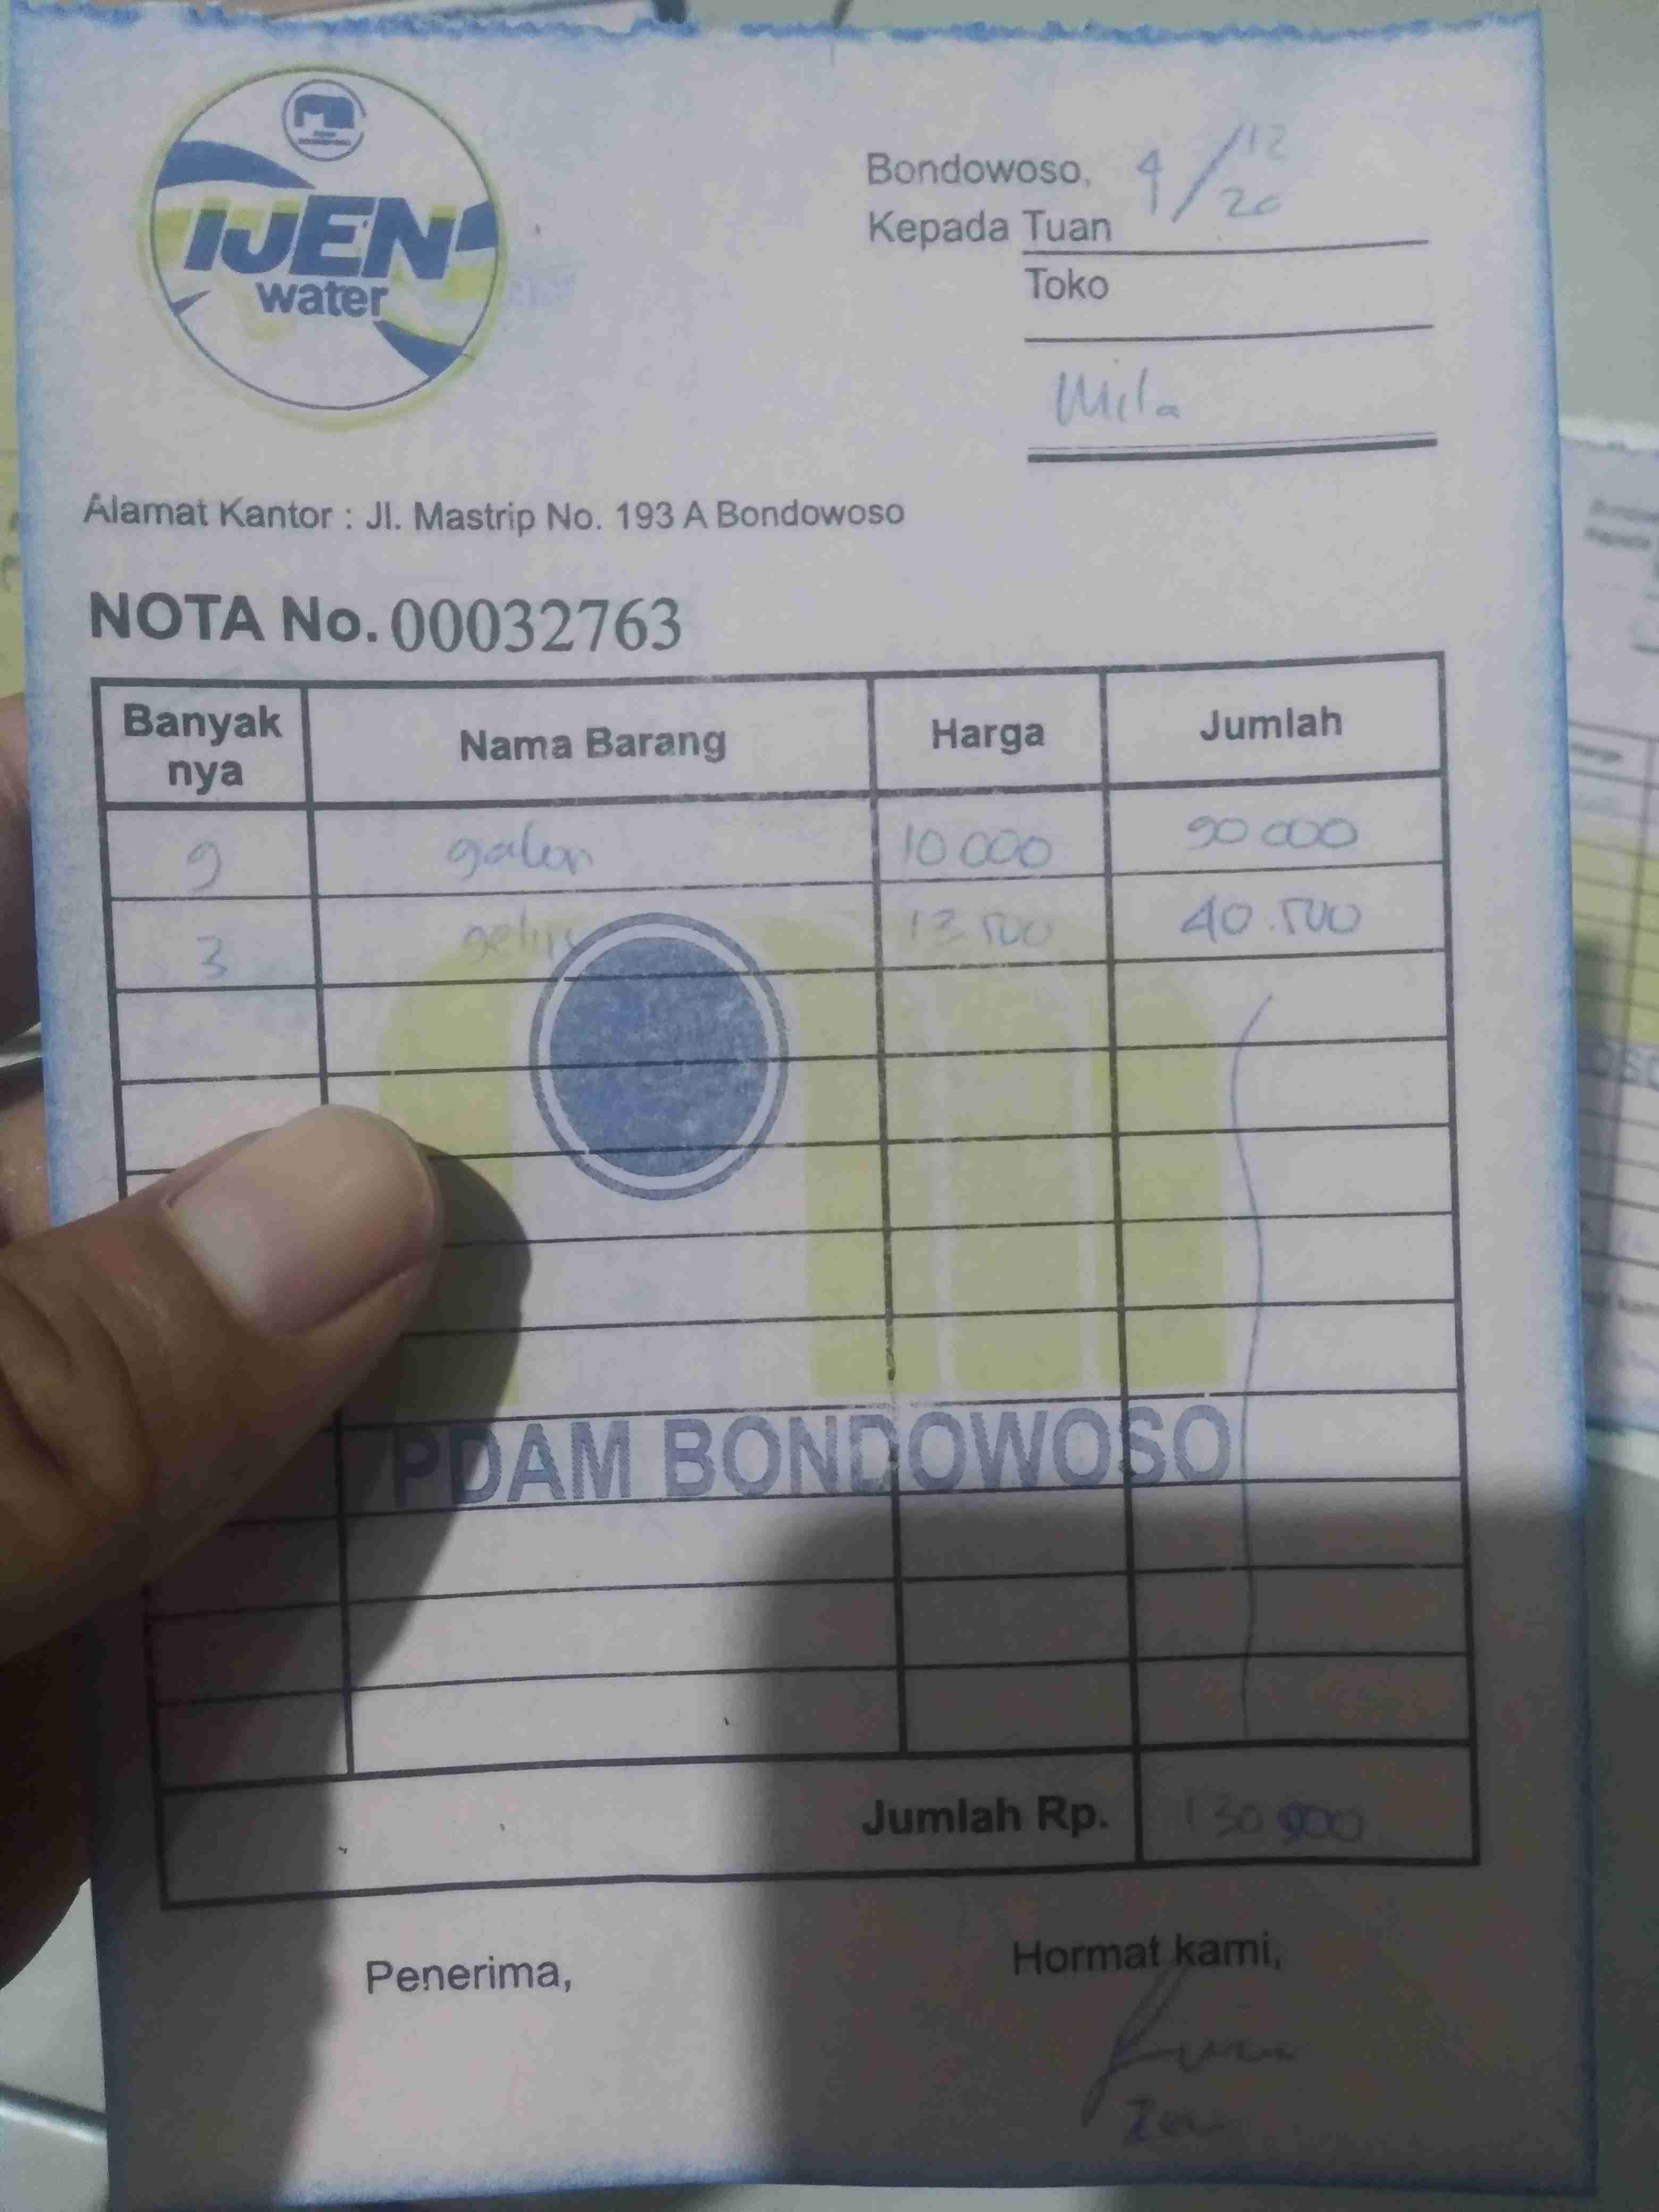 IJEN
water
Bondowoso, 4/12 20
Kepada Tuan
Toko
Mila
Alamat Kantor : Jl. Mastrip No. 193 A Bondowoso
NOTA No. 00032763
Banyak nya Nama Barang Harga Jumlah
9 galon 10 000 90 000
3 gelas 13.500 40.500
PDAM BONDOWOSO
Jumlah Rp.
Penerima, Hormat kami,